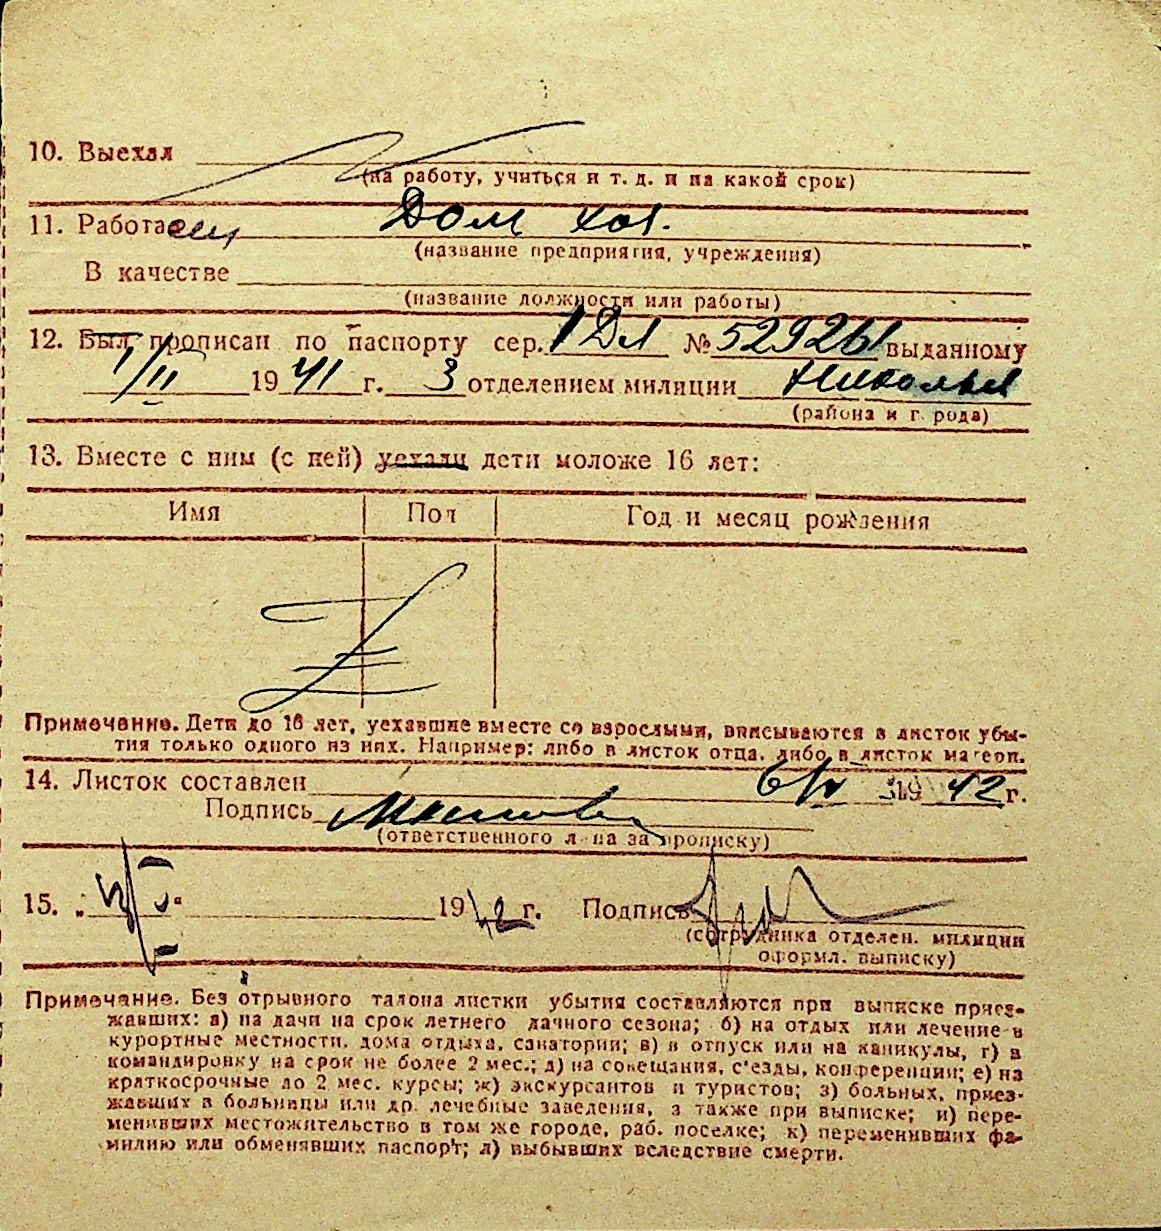 10. Выехал
(на работу, учиться и т. д. и на какой срок)
11. Работает Дом хоз.
(название предприятия, учреждения)
В качестве
(название должности или работы)
12. Был прописан по паспорту сер. 1 ДЛ № 529261 выданному
1/II 1941 г. 3 отделением милиции
(района и города)
13. Вместе с ним (с ней) уехали дети моложе 16 лет:
Имя Пол Год и месяц рождения
Примечание. Дети до 16 лет, уехавшие вместе со взрослыми, вписываются в листок убы-
тия только одного из них. Например: либо в листок отца, либо в листок матери.
14. Листок составлен 6/V 1942 г.
Подпись
(ответственного лица за прописку)
15. 1942 г. Подпись
(сотрудника отделен. милиции
оформл. выписку)
Примечание. Без отрывного талона листки убытия составляются при выписке приез-
жавших: а) на дачи на срок летнего дачного сезона; б) на отдых или лечение в
курортные местности, дома отдыха, санатории; в) в отпуск или на каникулы, г) в
командировку на срок не более 2 мес.; д) на совещания, с'езды, конференции; е) на
краткосрочные до 2 мес. курсы; ж) экскурсантов и туристов; з) больных, приез-
жавших в больницы или др. лечебные заведения, а также при выписке; и) пере-
менивших местожительство в том же городе, раб. поселке; к) переменивших фа-
милию или обменявших паспорт; л) выбывших вследствие смерти.